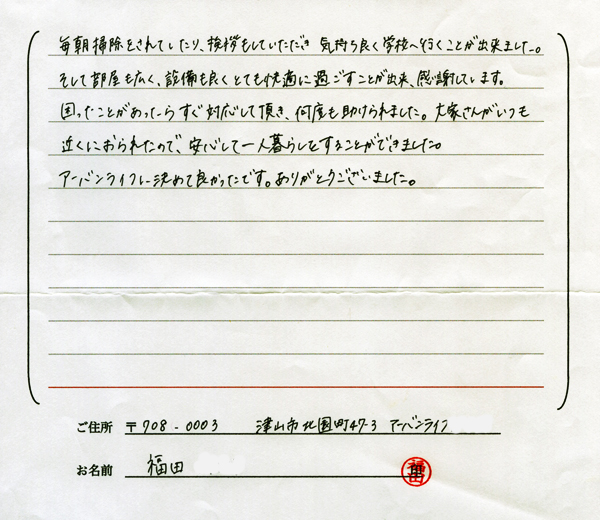 毎朝掃除をされていたり、挨拶もしていただき 気持ち良く学校へ行くことが出来ました。
そして部屋も広く、設備も良くとても快適に過ごすことが出来、感謝しています。
困ったことがあったらすぐ対応して頂き、何度も助けられました。大家さんがいつも
近くにおられたので、安心して一人暮らしをすることができました。
アーバンライフに決めて良かったです。ありがとうございました。
ご住所 〒708-0003 津山市北園町47-3 アーバンライフ
お名前 福田
福田